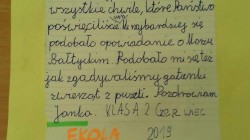 wszystkie chwile, które Państwo
poświęciliście. Najbardziej się
podobało opowiadanie o Morzu
Bałtyckim. Podobało mi się też
jak zgadywaliśmy gatunki
zwierząt z puszki. Pozdrawiam
Janka. KLASA 2 CZERWIEC
EKOLA 2019